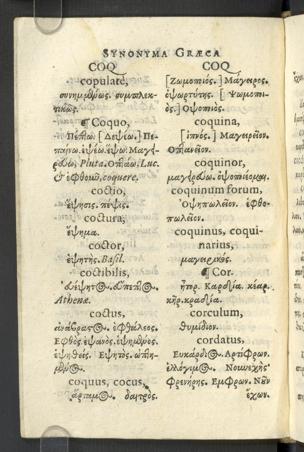 SYNONYMA GRÆCA
COQ
copulatè,
συνημμένως. συμπλεκ-
τικῶς.
¶ Coquo,
Πέπτω. [Δεψέω.] Πε-
ἑψέω. ἕψω. Μαγ
Pluta. Ὀπτάω, Luc.
& coquere.
coctio,
ἕψησις. πέψις.
coctura,
ἕψημα.
coctor,
ἑψητὴς. Basil.
coctibilis,
Athenæ.
coctus,
ἑφθαλέος.
Ἑφθός. ἑψανός.
ἑψηθείς. Ἑψητός.
coquus, cocus,
ἄρταμος. δαιτρός.
COQ
[Ζωμοποιός.] Μάγειρος.
ὀψαρτύτης. [Ψωμοποι-
ός.] Ὀψοποιός.
coquina,
[ἰπνός.] Μαγειρεῖον.
Ὀπτανεῖον.
coquinor,
μαγειρεύω. ὀψοποιέομαι.
coquinum forum,
Ὀψοπωλεῖον. ἑφθο-
πωλεῖον.
coquinus, coqui-
narius,
μαγειρικός.
¶ Cor.
ἦτορ. Καρδία. κέαρ.
κῆρ. κραδία.
corculum,
θυμίδιον.
cordatus,
Εὐκάρδιος. Ἀρτίφρων.
ἐλλόγιμος. Νουνεχής.
Φρενήρης. Ἔμφρων. Νοῦν
ἔχων.